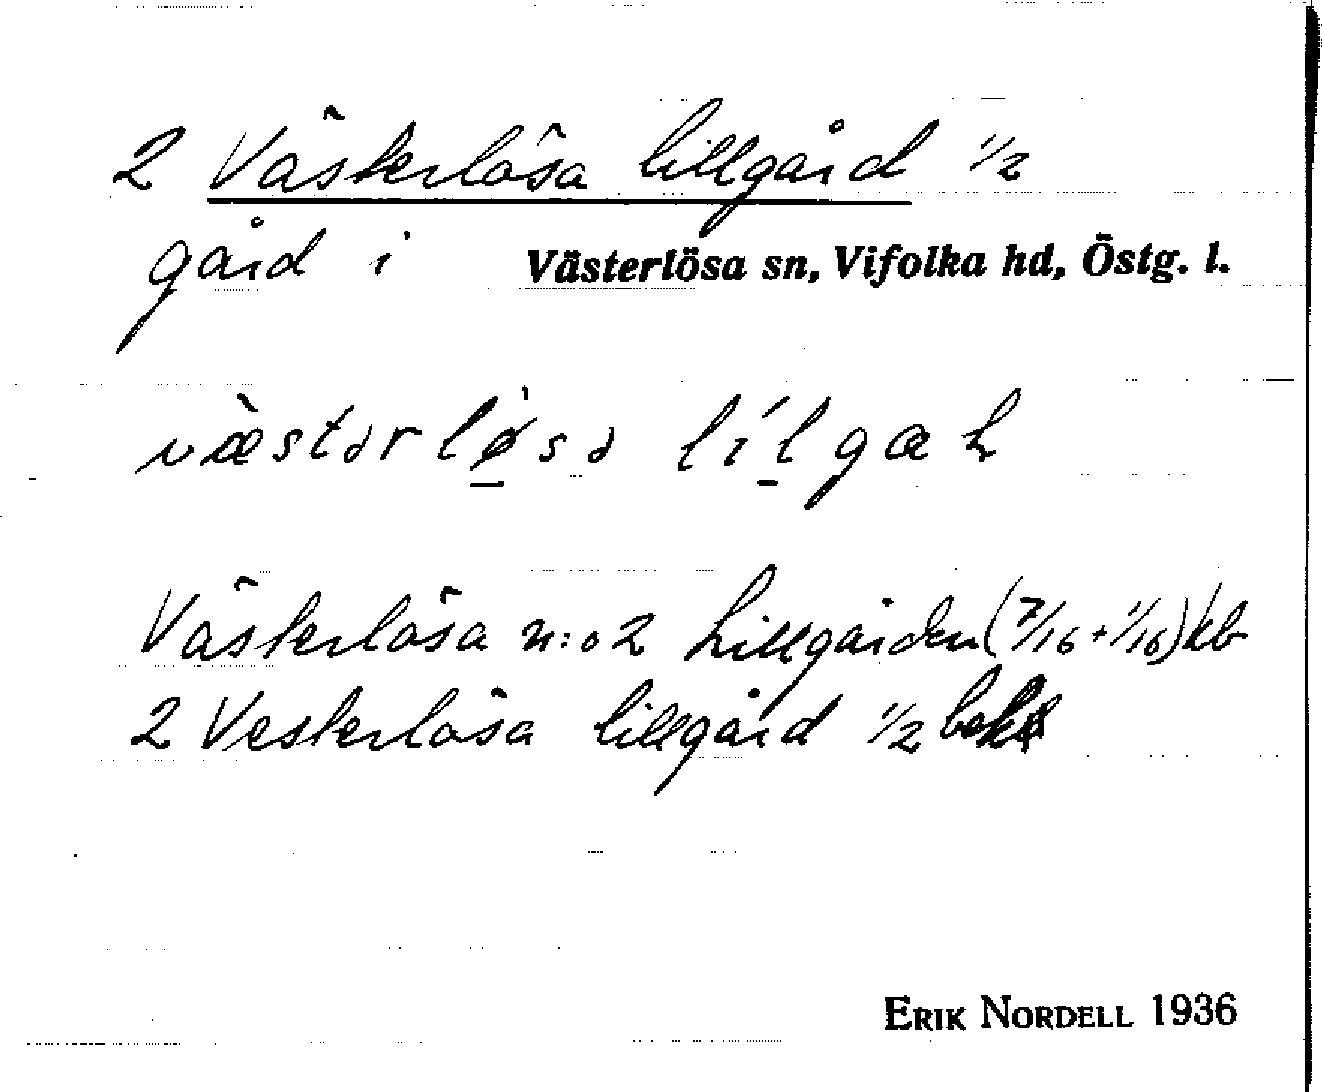 2 Västerlösa lillgård 1/2
gård i Västerlösa sn, Vifolka hd, Östg. l.
væstər lø̀sə lílgæh
Västerlösa n:o 2 Lillgården (7/16 + 1/16) kb
2 Vesterlösa lillgård 1/2
ERIK NORDELL 1936